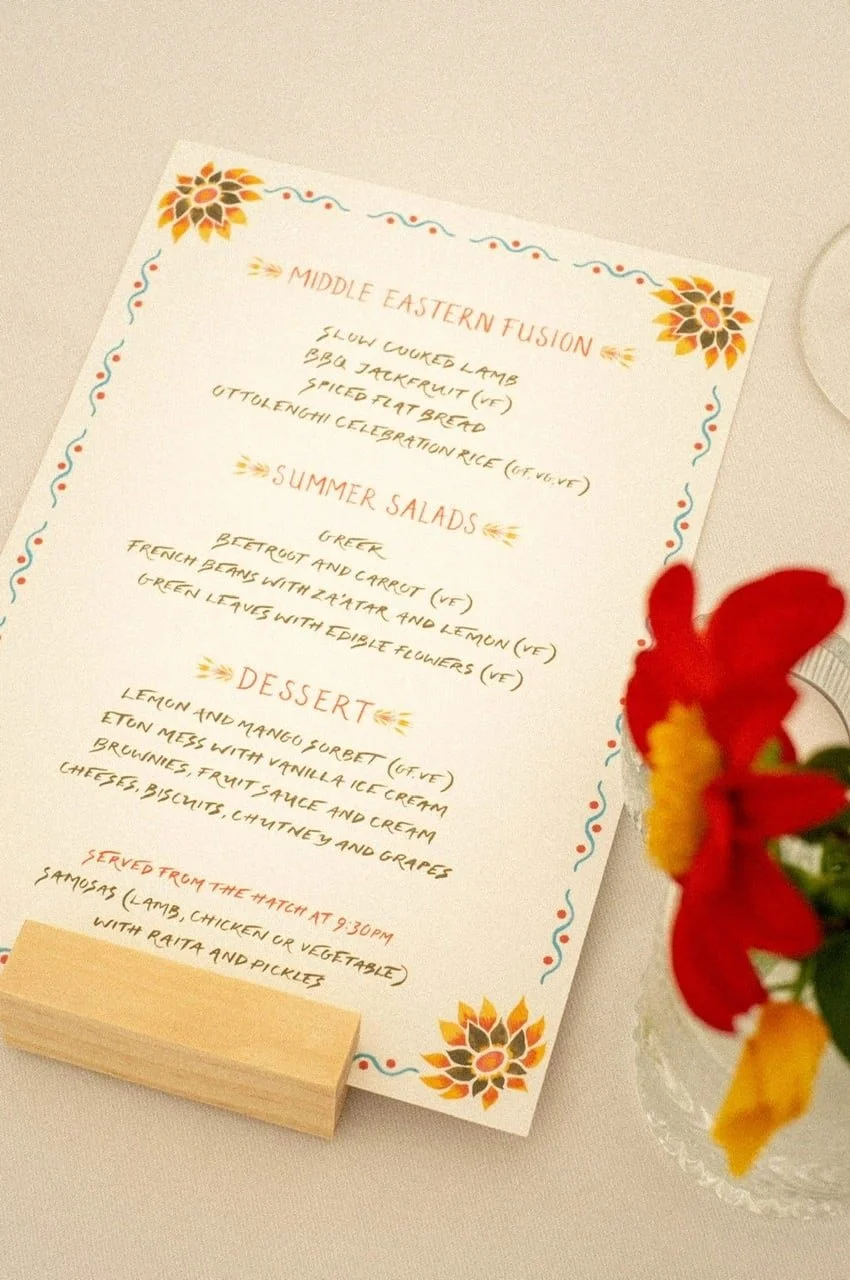 MIDDLE EASTERN FUSION
SLOW COOKED LAMB
BBQ JACKFRUIT (VE)
SPICED FLAT BREAD
OTTOLENGHI CELEBRATION RICE (GF, VG, VE)
SUMMER SALADS
GREEK
BEETROOT AND CARROT (VE)
FRENCH BEANS WITH ZA'ATAR AND LEMON (VE)
GREEN LEAVES WITH EDIBLE FLOWERS (VE)
DESSERT
LEMON AND MANGO SORBET (GF, VE)
ETON MESS WITH VANILLA ICE CREAM
BROWNIES, FRUIT SAUCE AND CREAM
CHEESES, BISCUITS, CHUTNEY AND GRAPES
SERVED FROM THE HATCH AT 9:30PM
SAMOSAS (LAMB, CHICKEN OR VEGETABLE)
WITH RAITA AND PICKLES